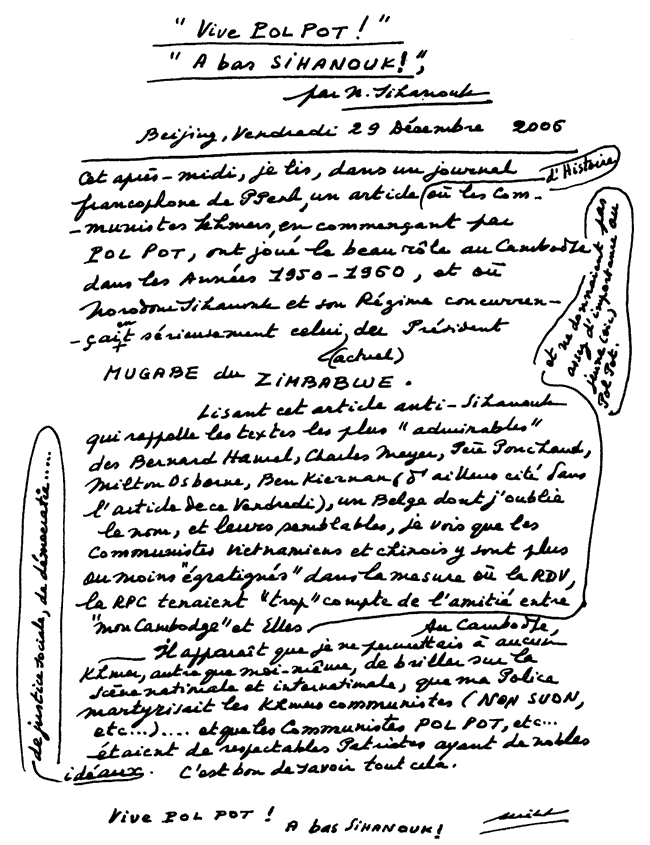 "Vive POL POT !"
"A bas SIHANOUK!",
par N. Sihanouk
Beijing, Vendredi 29 Décembre 2006
Cet après-midi, je lis, dans un journal
francophone de PPenh, un article d'Histoire (où les Com-
-munistes khmers, en commençant par
POL POT, ont joué le beau rôle au Cambodge
dans les Années 1950-1960, et où
Norodom Sihanouk et son Régime concurren-
-çait en sérieusement celui du Président
(actuel)
MUGABE du ZIMBABWE.
Lisant cet article anti-Sihanouk
qui rappelle les textes les plus "admirables"
des Bernard Hamel, Charles Meyer, Père Ponchaud,
Milton Osborne, Ben Kiernan (d'ailleurs cité dans
l'article de ce Vendredi), un Belge dont j'oublie
le nom, et leurs semblables, je vois que les
Communistes vietnamiens et chinois y sont plus
ou moins "égratignés" dans la mesure où la RDV,
la RPC tenaient "trop" compte de l'amitié entre
"mon Cambodge" et Elles
et ne donnaient pas
assez d'importance au
jeune (sic)
Pol Pot.
Au Cambodge,
Il apparaît que je ne permettais à aucun
Khmer, autre que moi-même, de briller sur la
scène nationale et internationale, que ma Police
martyrisait les Khmers communistes (NON SUON,
etc...).... et que les Communistes POL POT, etc...
étaient de respectables Patriotes ayant de nobles
idéaux. C'est bon de savoir tout cela.
de justice sociale, de démocratie.....
Vive POL POT !
A bas SIHANOUK!